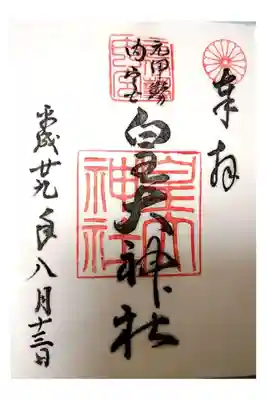 奉拝
元伊勢
内宮
皇大神社
皇大
神社
平成廿九年八月十三日